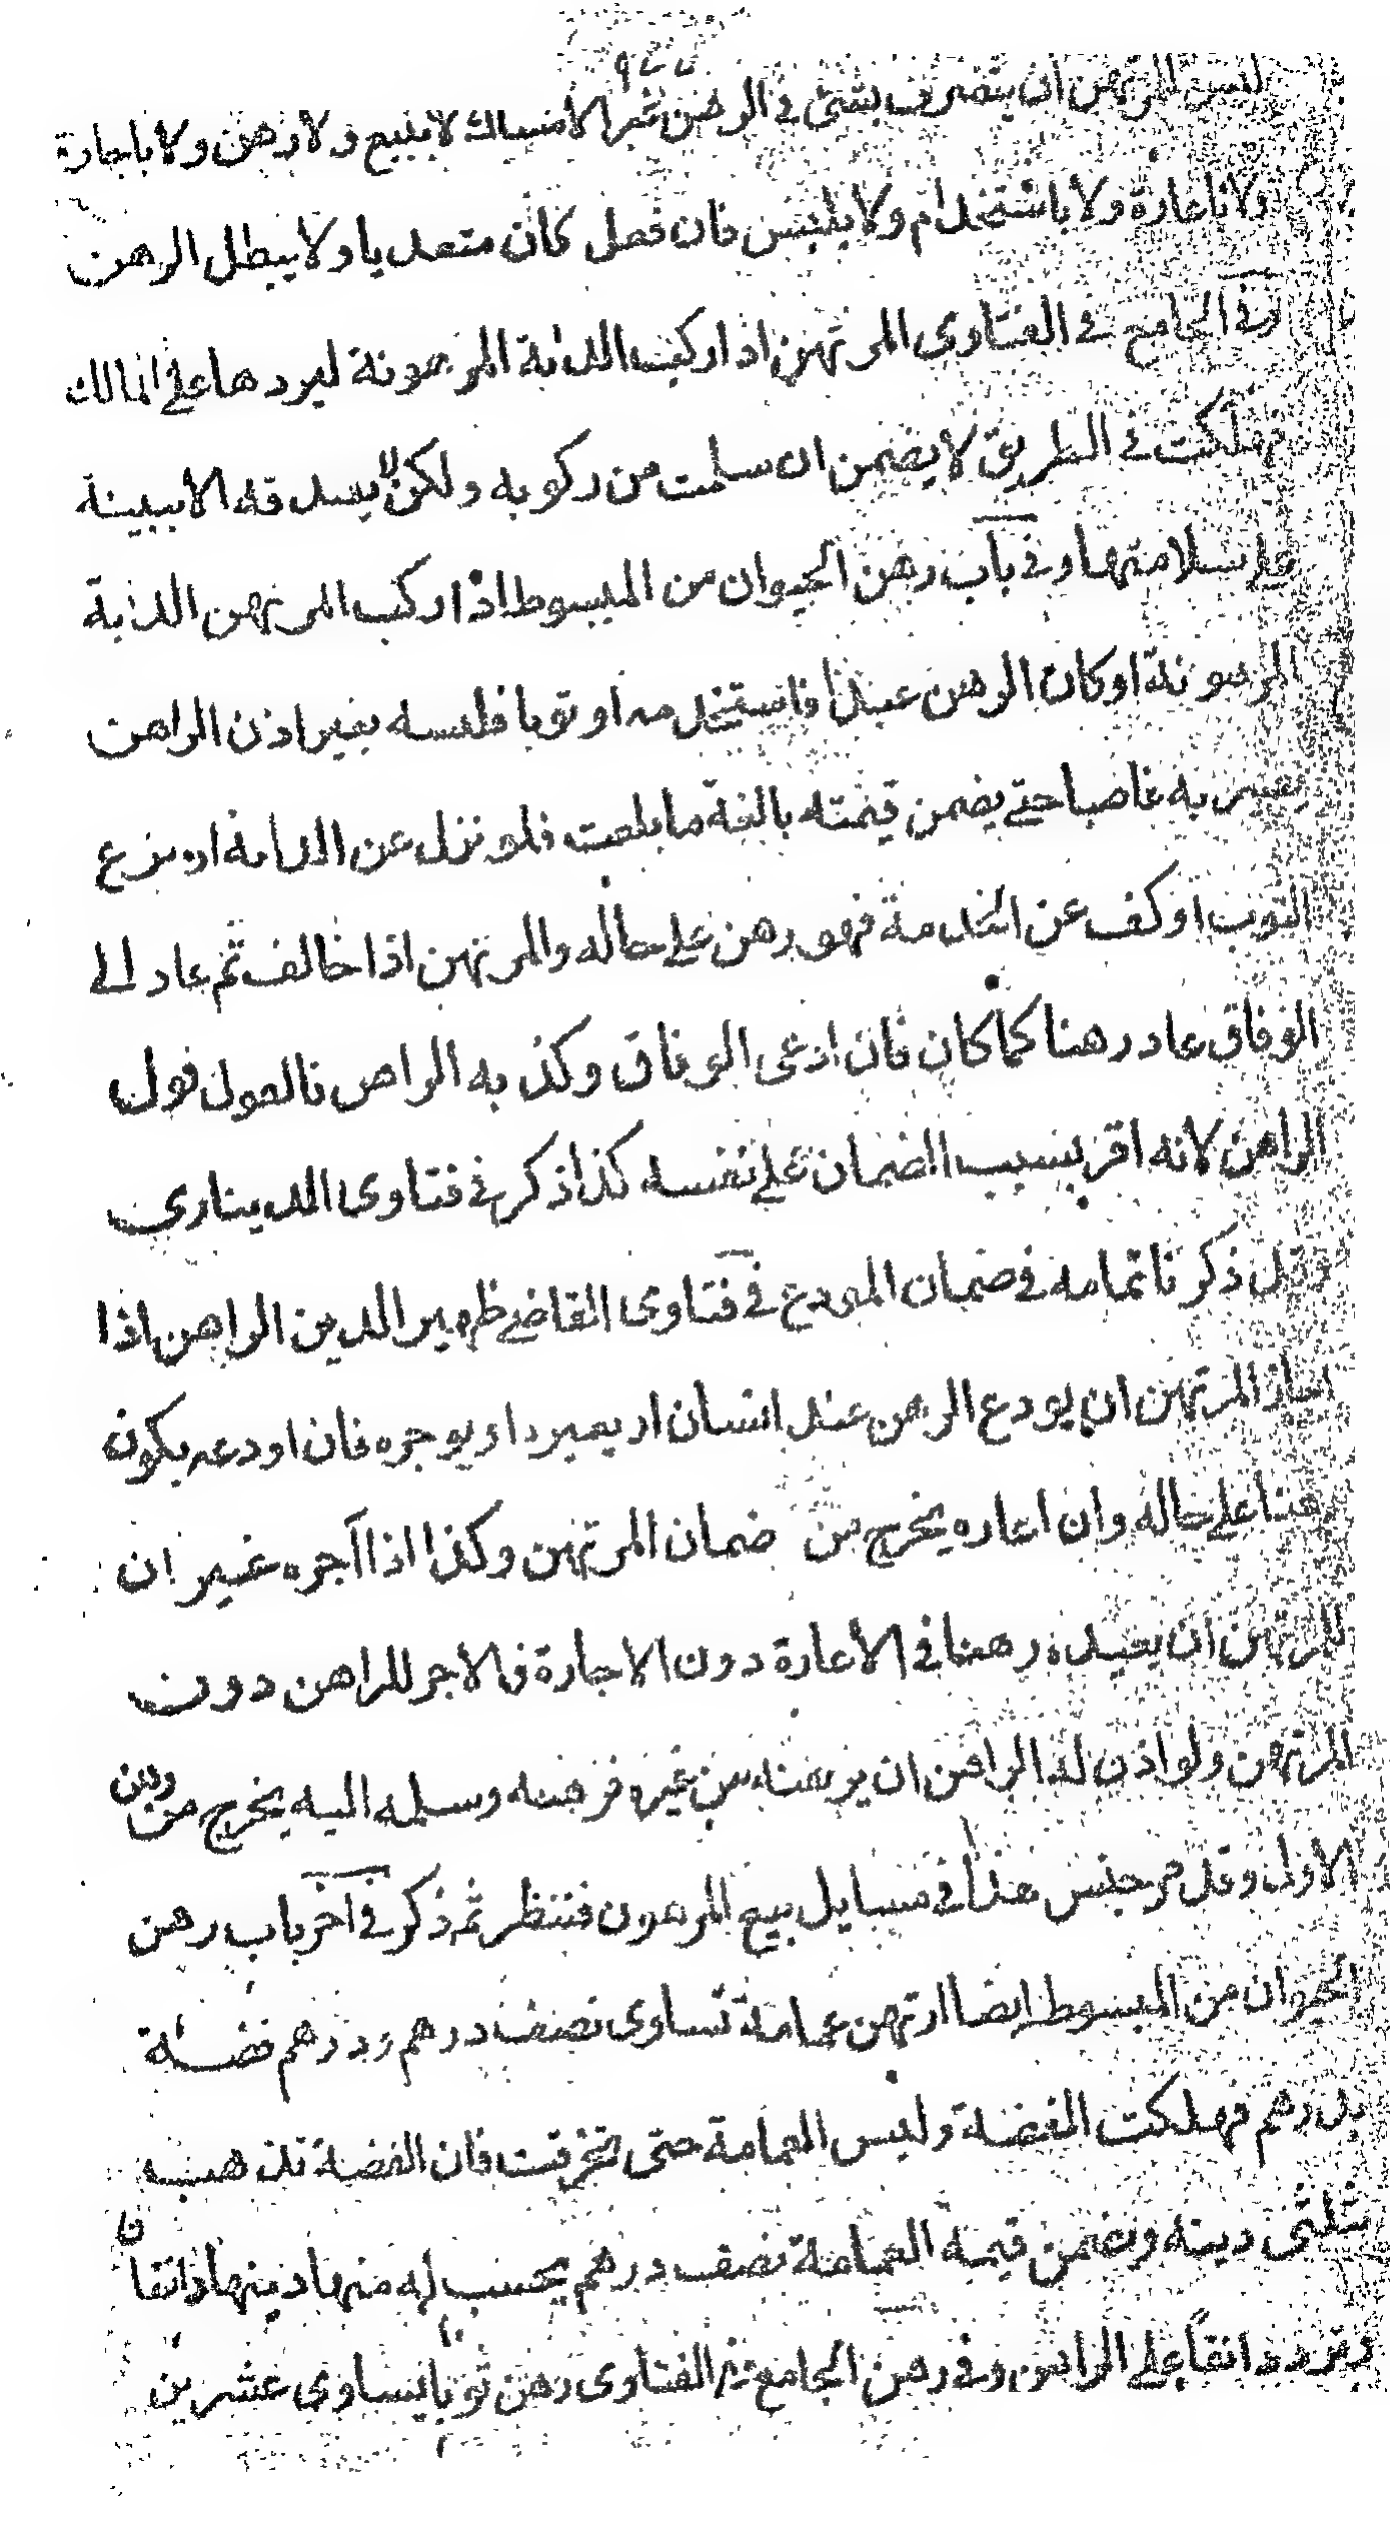 ليس للمرتهن ان يتصرف بشئ في الرهن غير الامساك لا ببيع ولا رهن ولا باجارة
ولا باعارة ولا باستخدام ولا بلبس فان فعل كان متعديا ولا يبطل الرهن
وفي الجامع في الفتاوى المرتهن اذا ركب الدابة المرهونة ليردها على المالك
فهلكت في الطريق لا يضمن ان سلمت من ركوبه ولكن لا يصدقه الا ببينة
على سلامتها وفي باب رهن الحيوان من المبسوط اذا ركب المرتهن الدابة
المرهونة او كان الرهن عبدا فاستخدمه او ثوبا فلبسه بغير اذن الراهن
يصير به غاصبا حتى يضمن قيمته بالغة ما بلغت فلو نزل عن الدابة او نزع
الثوب او كف عن الخدمة فهو رهن على حاله والمرتهن اذا خالف ثم عاد الى
الوفاق عاد رهنا كما كان فان ادعى الوفاق وكذبه الراهن فالقول قول
الراهن لانه اقر بسبب الضمان على نفسه كذا ذكر في فتاوى الديناري
وقد ذكرنا تمامه في ضمان المودع في فتاوى القاضي ظهير الدين الراهن اذا
اجاز المرتهن ان يودع الرهن عند انسان او يعيره او يوجره فان اودعه يكون
رهنا على حاله وان اعاره يخرج من ضمان المرتهن وكذا اذا آجره غير ان
للمرتهن ان يعيده رهنا في الاعارة دون الاجارة والاجر للراهن دون
المرتهن ولو اذن له الراهن ان يرهنه من غيره فرهنه وسلمه اليه يخرج من رهن
الاول وقد مر جنس هذا في مسايل بيع المرهون فتنظر ثمه ذكر في آخر باب رهن
الحيوان من المبسوط ايضا ارتهن عمامة تساوى نصف درهم ودرهم فضة
بدرهم فهلكت الفضة ولبس العمامة حتى تخرقت فان الفضة تذهب
بثلثى دينه وضمن قيمة العمامة نصف درهم يحسب له منها دينها دانقان
ويرد دانقا على الراهن وفي رهن الجامع في الفتاوى رهن ثوبا يساوى عشرين